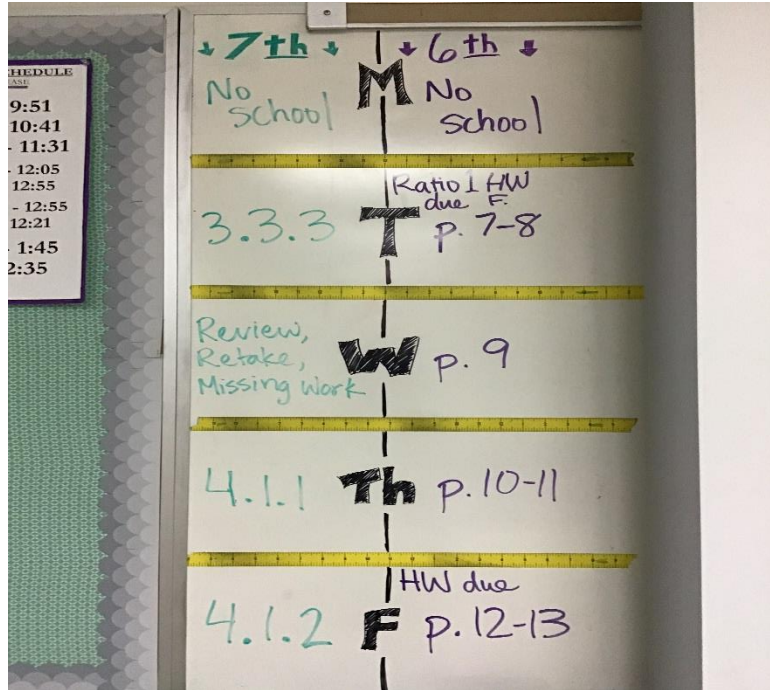 CHEDULE
9:51
10:41
- 11:31
- 12:05
12:55
- 12:55
12:21
- 1:45
2:35
7th 6th
No school M No school
Ratio 1 HW
due F.
3.3.3 T p. 7-8
Review,
Retake, W p. 9
Missing Work
4.1.1 Th p. 10-11
HW due
4.1.2 F p. 12-13